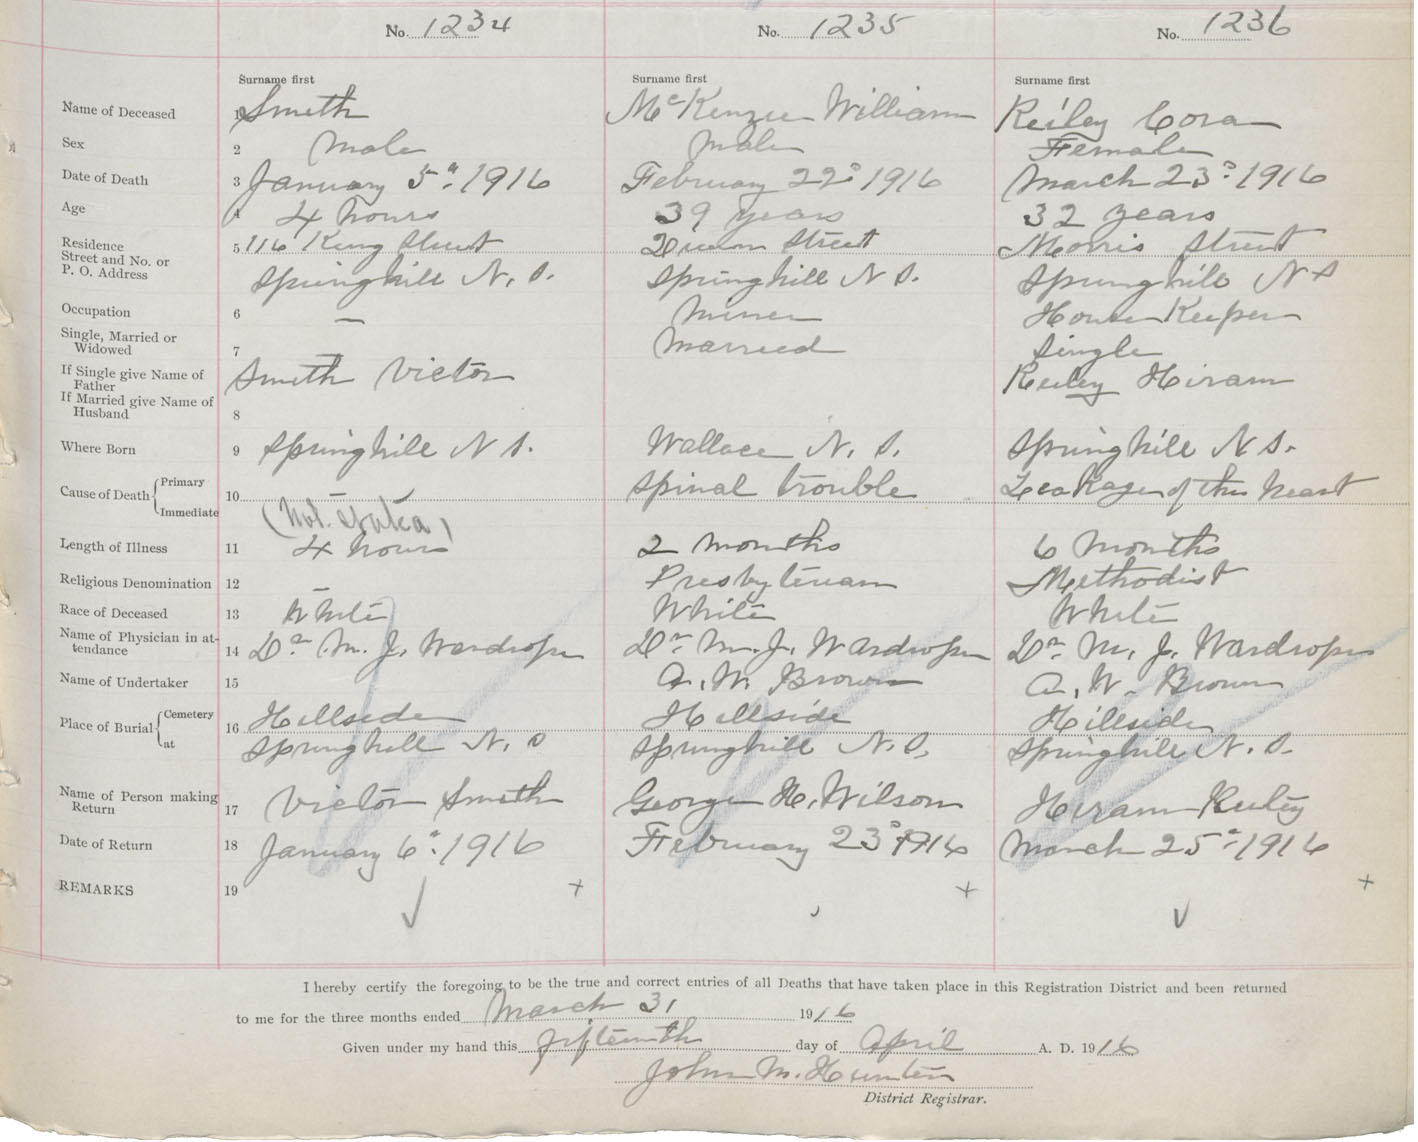 No. 1234 No. 1235 No. 1236
Surname first Surname first Surname first
Name of Deceased 1 Smith McKenzie William Reiley Cora
Sex 2 Male Male Female
Date of Death 3 January 5th 1916 February 22d 1916 March 23d 1916
Age 4 4 hours 39 years 32 years
Residence 5 116 King Street Queen Street Morris Street
Street and No. or
P. O. Address Springhill N. S. Springhill N S. Springhill N S
Occupation 6 — Miner House Keeper
Single, Married or
Widowed 7 Married Single
If Single give Name of Smith Victor Reiley Hiram
Father
If Married give Name of
Husband 8
Where Born 9 Springhill N S. Wallace N. S. Springhill N S.
Cause of Death { Primary 10 — Spinal trouble Leakage of the heart
Immediate (Not stated)
Length of Illness 11 4 hours 2 months 6 Months
Religious Denomination 12 — Presbyterian Methodist
Race of Deceased 13 White White White
Name of Physician in at-
tendance 14 Dr. M. J. Wardrope Dr. M. J. Wardrope Dr. M. J. Wardrope
Name of Undertaker 15 A. W. Brown A. W. Brown
Place of Burial { Cemetery 16 Hillside Hillside Hillside
at Springhill N. S Springhill N. S. Springhill N. S.
Name of Person making
Return 17 Victor Smith George H. Wilson Hiram Reiley
Date of Return 18 January 6th 1916 February 23d 1916 March 25th 1916
REMARKS 19
I hereby certify the foregoing to be the true and correct entries of all Deaths that have taken place in this Registration District and been returned
to me for the three months ended March 31 1916
Given under my hand this fifteenth day of April A. D. 1916
John M. Hunter
District Registrar.